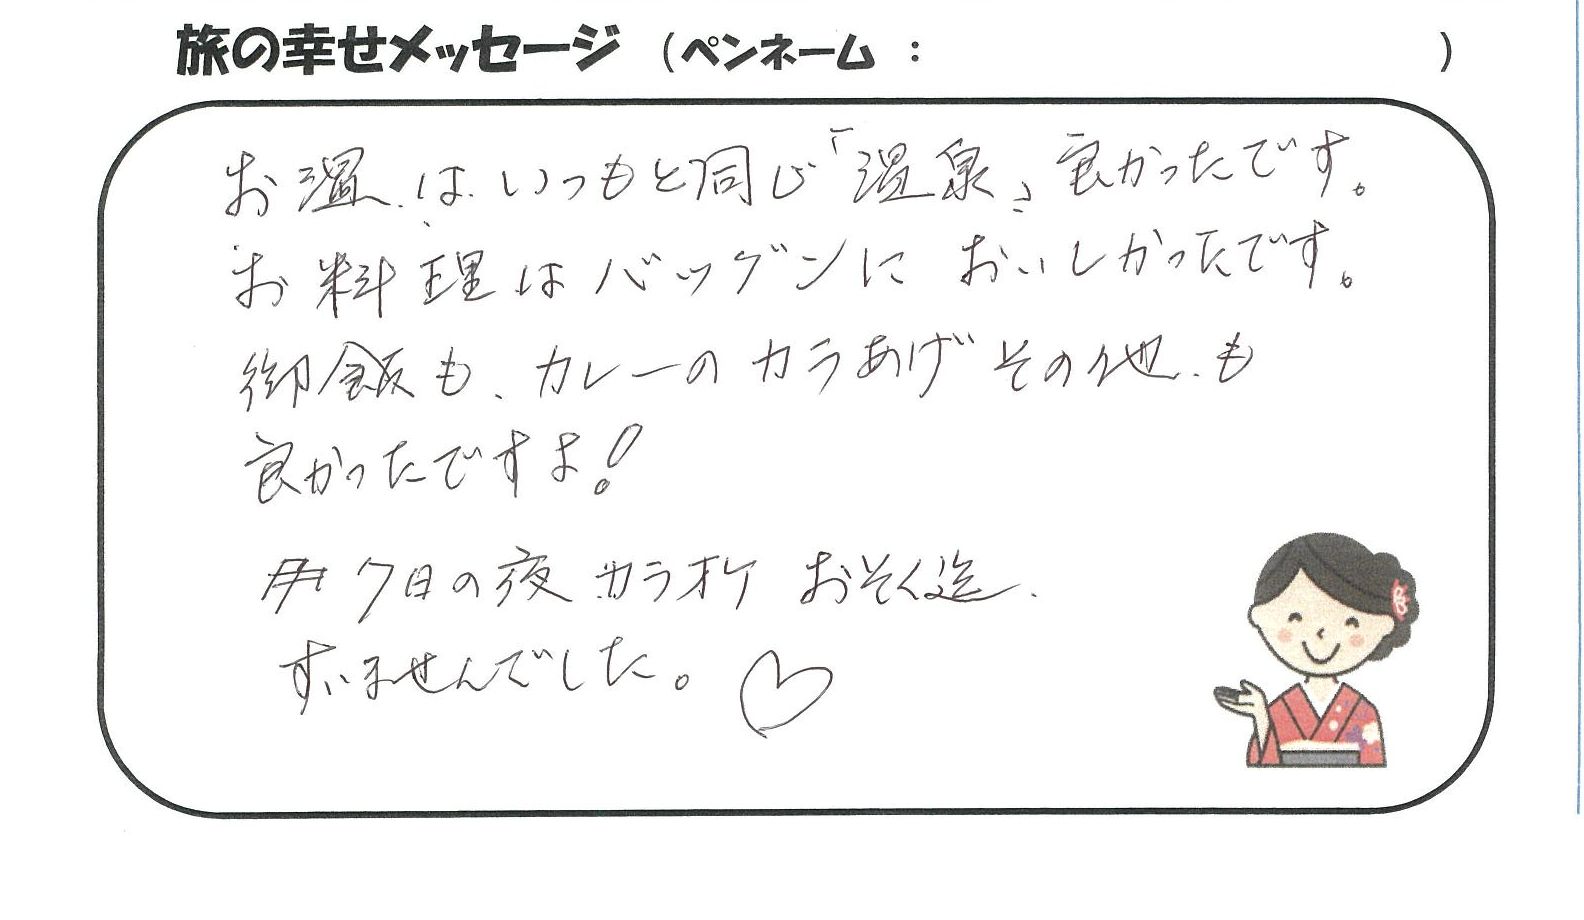 旅の幸せメッセージ (ペンネーム : )
お温はいつもと同じ「温泉」良かったです。
お料理はバッグンにおいしかったです。
御飯も、カレーのカラあげその他も
良かったですよ!
7日の夜カラオケおそく迄
すいませんでした。♡